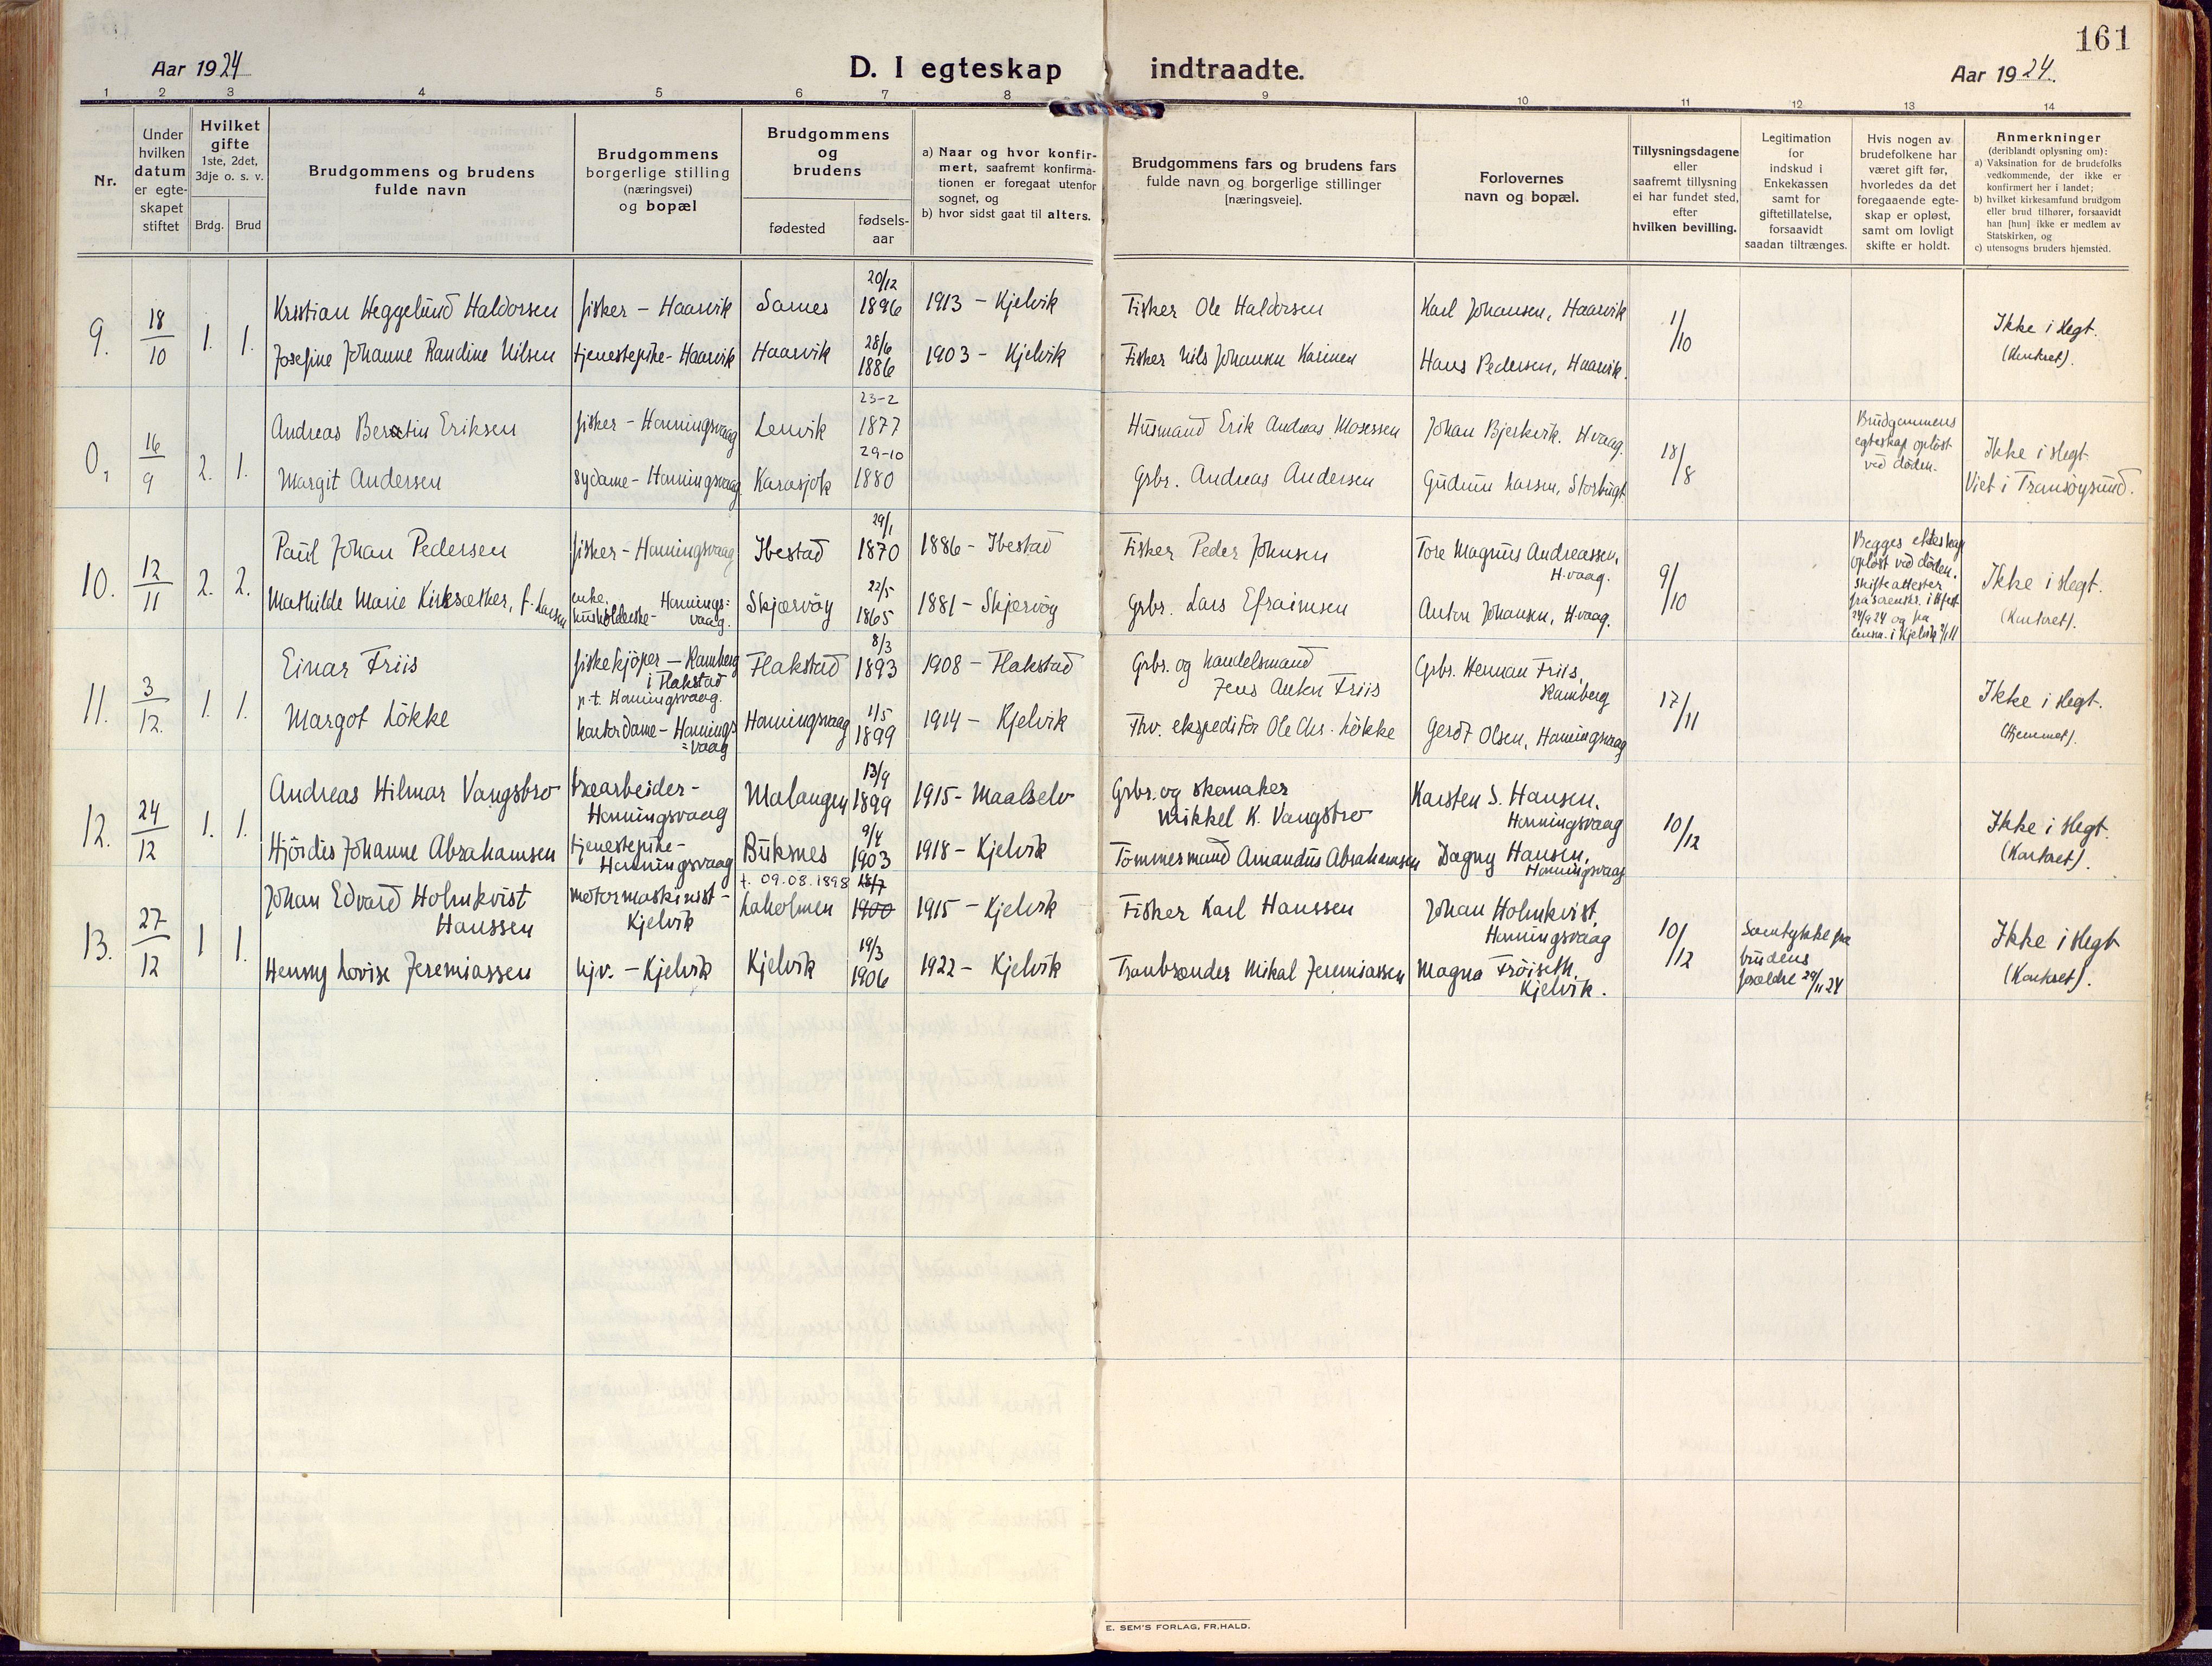 161
Aar 1924
D. I egteskap indtraadte.
Aar 1924.
1 2 3 4 5 6 7 8 9 10 11 12 13 14
Nr.
Under
hvilken
datum
er egte-
skapet
stiftet
Hvilket
gifte
1ste, 2det,
3dje o. s. v.
Brdg. Brud
Brudgommens og brudens
fulde navn
Brudgommens
borgerlige stilling
(næringsvei)
og bopæl
Brudgommens
og
brudens
fødested
fødsels-
aar
a) Naar og hvor konfir-
mert, saafremt konfirma-
tionen er foregaat utenfor
sognet, og
b) hvor sidst gaat til alters.
Brudgommens fars og brudens fars
fulde navn og borgerlige stillinger
[næringsveie].
Forlovernes
navn og bopæl.
Tillysningsdagene
eller
saafremt tillysning
ei har fundet sted,
efter
hvilken bevilling.
Legitimation
for
indskud i
Enkekassen
samt for
giftetillatelse,
forsaavidt
saadan tiltrænges.
Hvis nogen av
brudefolkene har
været gift før,
hvorledes da det
foregaaende egte-
skap er opløst,
samt om lovligt
skifte er holdt.
Anmerkninger
(deriblandt oplysning om):
a) Vaksination for de brudefolks
vedkommende, der ikke er
konfirmert her i landet;
b) hvilket kirkesamfund brudgom
eller brud tilhører, forsaavidt
han [hun] ikke er medlem av
Statskirken, og
c) utensogns bruders hjemsted.
9. 18/10 1. 1.
Kristian Heggelund Haldorsen fisker – Haarvik Sarnes 20/12 1896 1913 – Kjelvik Fisker Ole Haldorsen Karl Johansen, Haarvik 1/10 Ikke i slegt.
Josefine Johanne Randine Nilsen tjenestepike - Haarvik Haarvik 28/6 1886 1903 - Kjelvik Fisker Nils Johansen Hans Pedersen, Haarvik. (Kontoret).
0, 16/9 2. 1.
Andreas Eriksen fisker - Honningsvaag Lenvik 23-2 1877 Husmand Erik Andreas Mosessen Johan Bjerkvik. Hvaag. 18/8 Brudgommens
egteskap opløst
ved døden. Ikke i slegt.
Margit Andersen sydame - Honningsvaag Karasjok 29-10 1880 Grbr. Andreas Andersen Gudrun Larsen, Storbugt Viet i Tranøysund.
10. 12/11 2. 2.
Paul Johan Pedersen fisker - Honningsvaag Ibestad 29/1 1870 1886 - Ibestad Fisker Peder Johnsen Tore Magnus Andreassen,
H.vaag. 9/10 Begges ekteskap
opløst ved døden.
Skifteattester
fra sorenskr. i Hfest
24/9 24 og fra
lensm. i Kjelvik Ikke i slegt.
Mathilde Marie Kirksæther, f. Larsen enke,
husholderske - Honnings=
vaag. Skjærvøy 22/5 1865 1881 - Skjærvøy Grbr. Lars Efraimsen Anton Johansen, Hvaag. (Kontoret).
11. 3/12. 1. 1.
Einar Friis fiskekjøper – Ramberg
i Flakstad
p.t. Honningsvaag. Flakstad 8/3 1893 1908 - Flakstad Grbr. og handelsmand
Jens Anton Friis Grbr. Herman Friis,
Ramberg 17/11 Ikke i slegt.
Margot Løkke kontordame - Honnings
=vaag Honningsvaag 1/5 1899 1914 - Kjelvik Fhv. ekspeditør Ole Chr. Løkke Gerdt Olsen, Honningsvaag (Hjemmet).
12. 24/12 1. 1.
Andreas Hilmar Vangsbro træarbeider -
Honningsvaag Malangen 13/9 1899 1915 - Maalselv Grbr. og skomaker
Mikkel K. Vangsbro Karsten S. Hansen,
Honningsvaag 10/12 Ikke i slegt.
Hjördis Johanne Abrahamsen tjenestepike -
Honningsvaag Buksnes 9/4 1903 1918 - Kjelvik Tømmermand Amandus Abrahamsen Dagny Hansen,
Honningsvaag (Kontoret).
13. 27/12 1 1.
Johan Edvard Holmkvist
Hanssen motormaskinist -
Kjelvik f. 09.08.1898 Laholmen 18/7 1900 1915 - Kjelvik Fisker Karl Hanssen Johan Holmkvist,
Honningsvaag 10/12 Samtykke fra
brudens
forældre 29/11 24 Ikke i slegt
Henny Lovise Jeremiassen hjv. – Kjelvik Kjelvik 19/3 1906 1922 - Kjelvik Tranbrænder Mikal Jeremiassen Magna Frøiseth,
Kjelvik. (Kontoret).
E. SEM'S FORLAG, FR.HALD.